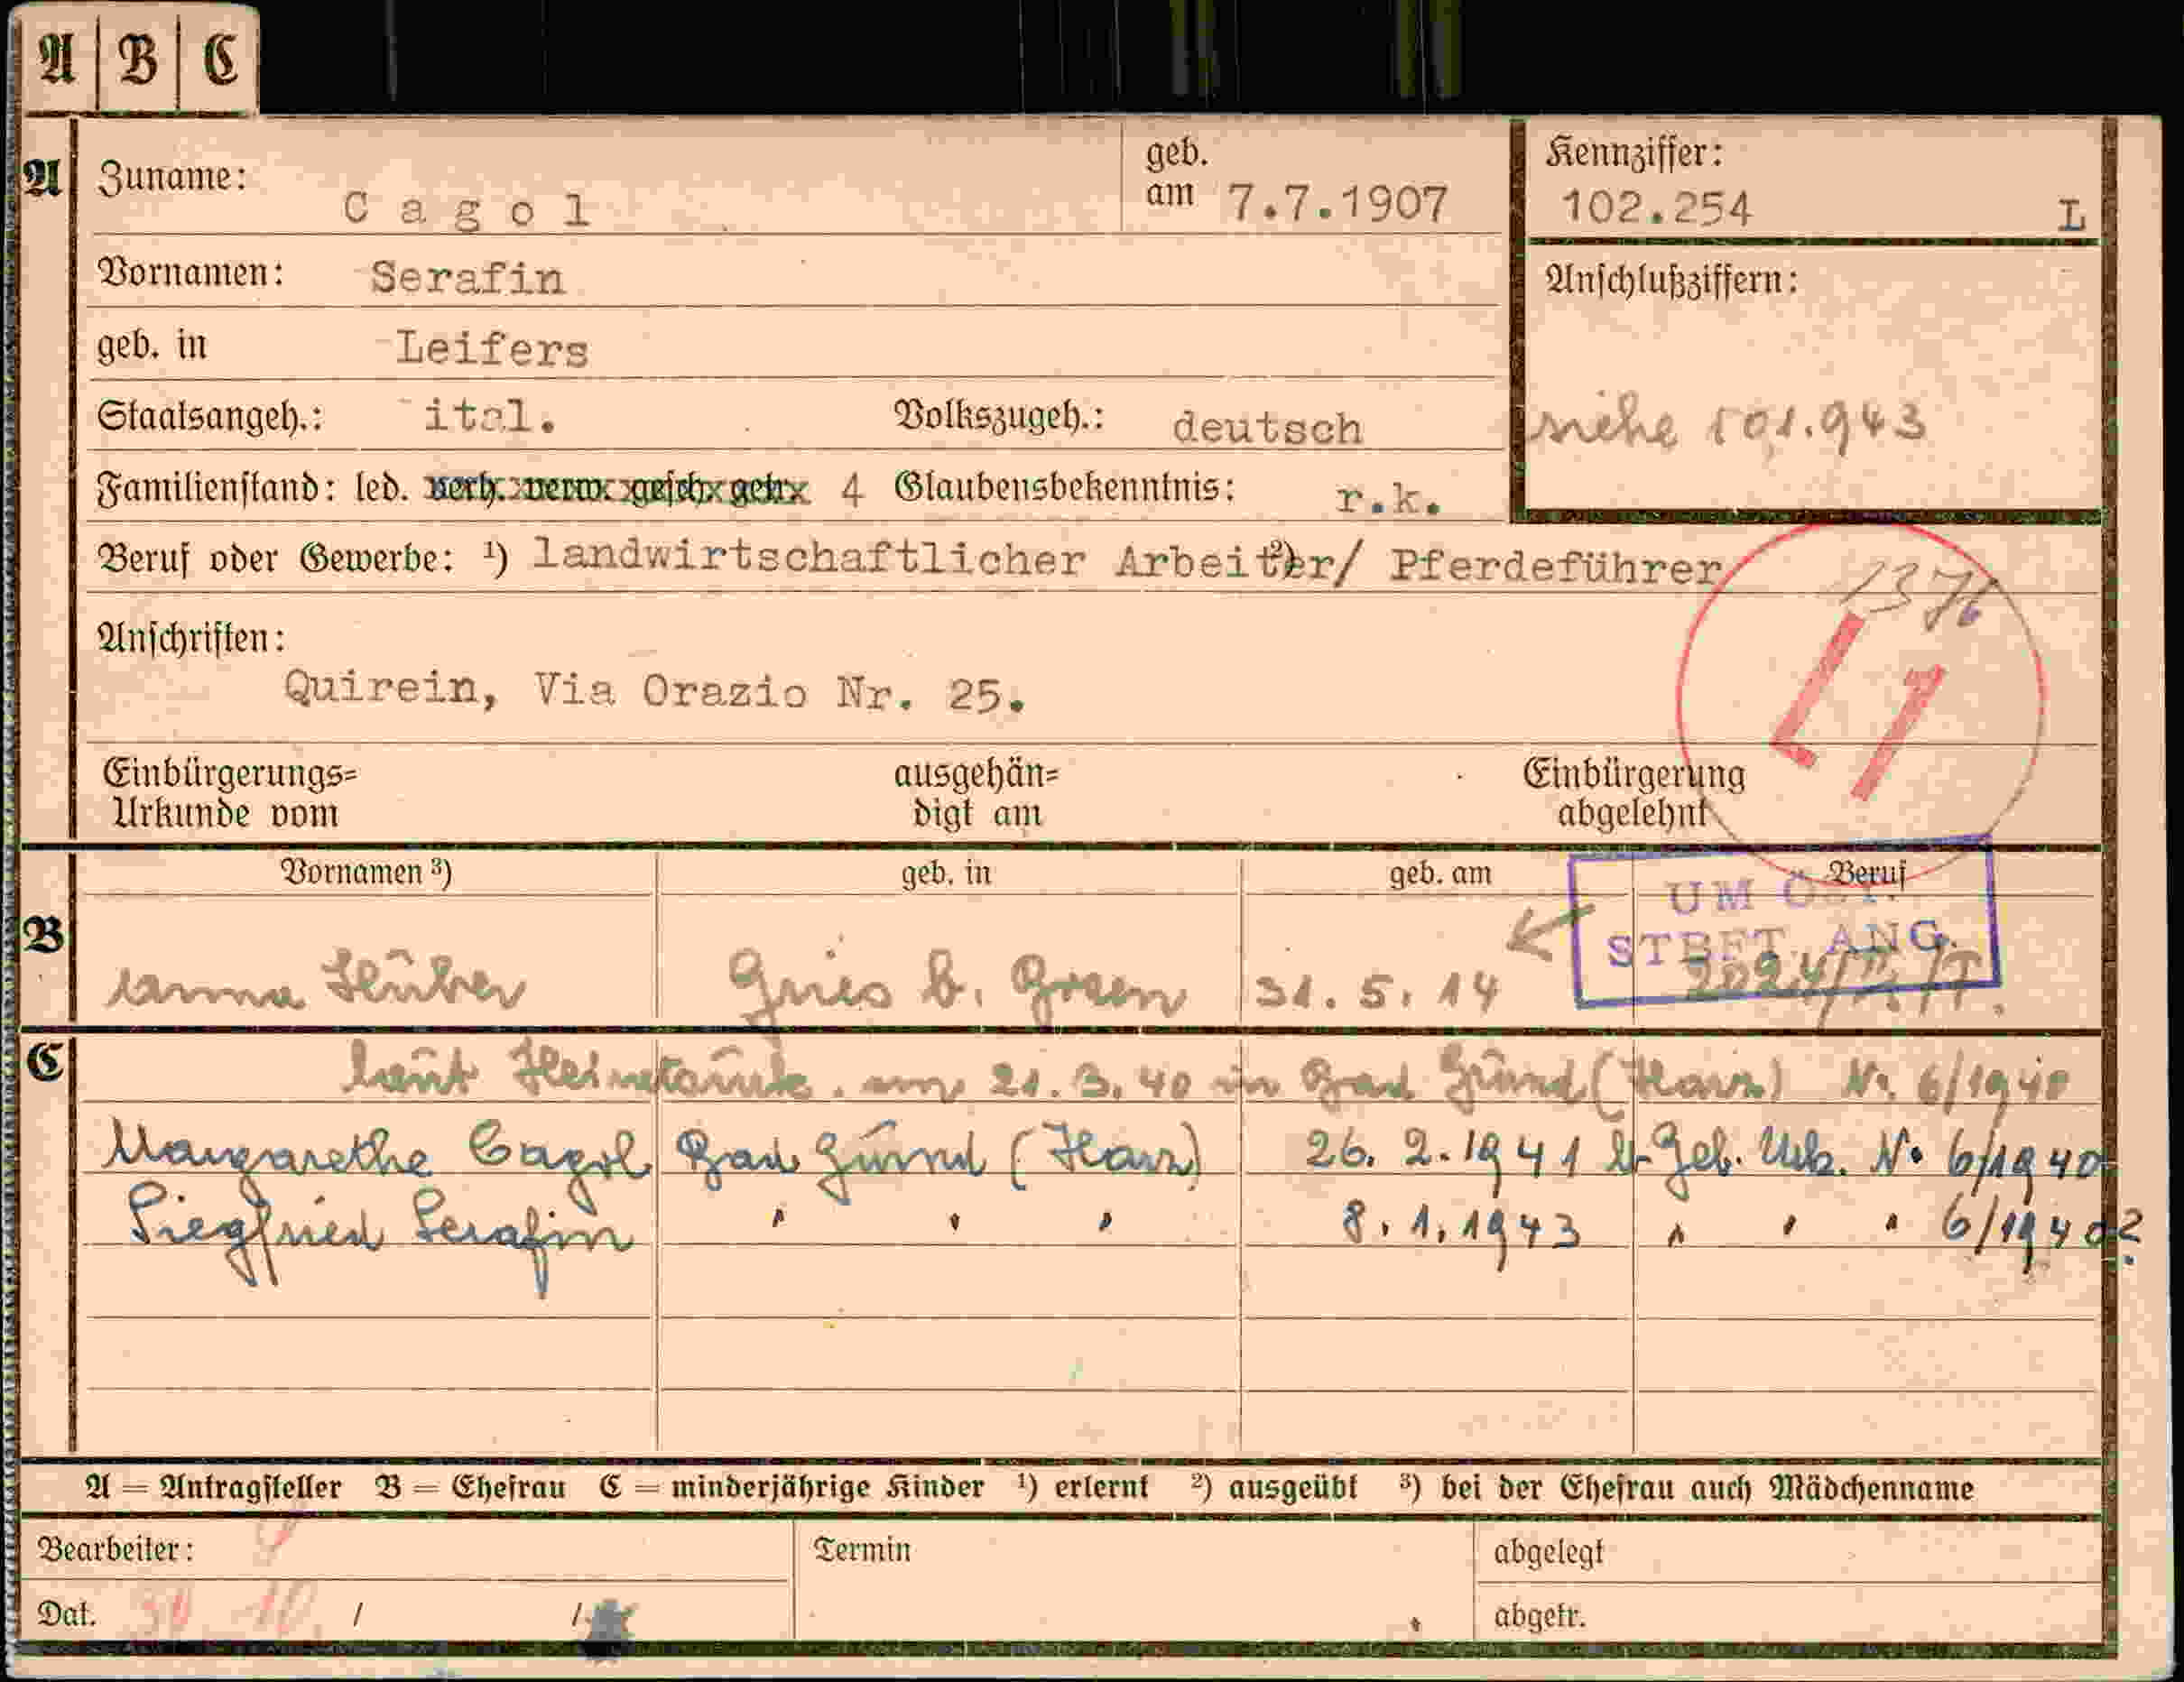 A B C
A Zuname: Cagol geb. am 7.7.1907
Kennziffer: 102.254 L
Vornamen: Serafin
Anschlußziffern:
geb. in Leifers
siehe 101.943
Staatsangeh.: ital. Volkszugeh.: deutsch
Familienstand: led. verh. verw. gesch. getr. 4 Glaubensbekenntnis: r.k.
Beruf oder Gewerbe: ¹) landwirtschaftlicher Arbeiter/ ²) Pferdeführer
1376
L1
Anschriften:
Quirein, Via Orazio Nr. 25.
Einbürgerungs=
Urkunde vom
ausgehän=
digt am
Einbürgerung
abgelehnt
Vornamen ³) geb. in geb. am Beruf
UM ÖST.
STBFT. ANG.
B Anna Huber Gries b. Bozen 31.5.14
C laut Heiratsurk. am 21.3.40 in Bad Grund (Harz) Nr. 6/1940
Margarethe Cagol Bad Grund (Harz) 26.2.1941 lt. Geb. Urk. Nr. 6/1940
Siegfried Serafin " " " 8.1.1943 " " " 6/1940?
A = Antragsteller B = Ehefrau C = minderjährige Kinder ¹) erlernt ²) ausgeübt ³) bei der Ehefrau auch Mädchenname
Bearbeiter: Termin abgelegt
Dat. / / abgetr.